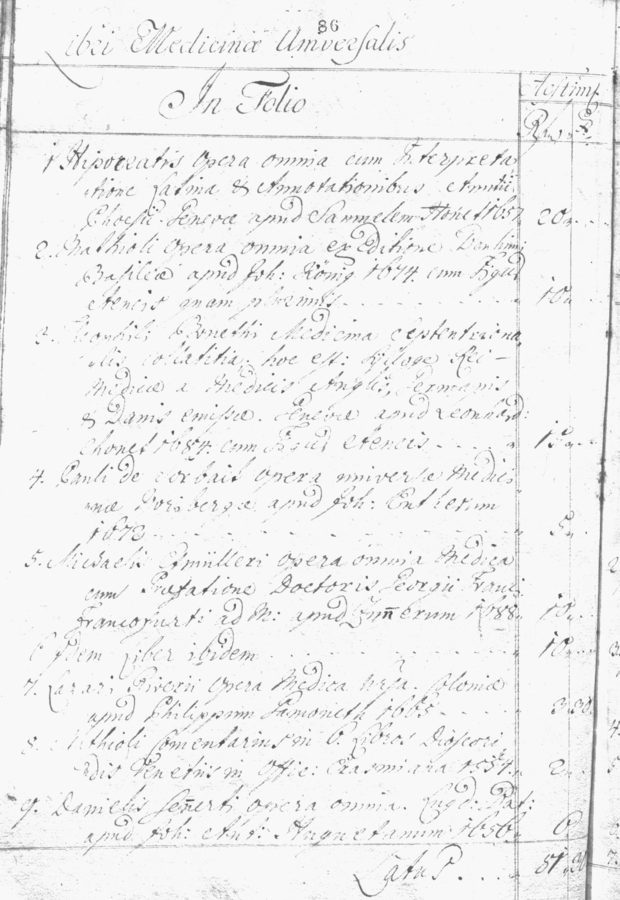 86
Libri Medicinæ Universalis
Æstimo
In Folio
1 Hipocratis Opera omnia cum Interpreta
tione Latina & Annotationibus Anutii
Phoesii. Genevæ apud Samuelem Chonet 1657 20
2. Mathioli Opera omnia ex Editione Bauhini
Basiliæ apud Joh: König 1674. cum Figuris
æneis quam plurimis 10
3. Theophili Bonethi Medicina Septentriona
lis collatitia. hoc est: Rei
Medicæ a Medicis Anglis, Germanis
& Danis emissæ. Genevæ apud Leonhard:
Chonet 1684. cum Figuris æneis 15
4. Pauli de Sorbait Opera universa Medici
næ Noribergæ apud Joh:
1672 5
5. Michaelis Etmülleri Opera omnia Medica
cum Præfatione Doctoris Georgii Franci
Francofurti ad M: apud Zunnerum 1688 10
6 Idem Liber ibidem 10
7. Lazari Riverii Opera Medica Coloniæ
apud Philippum 1665 3 30
8. Mathioli Comentarius in 6. Libros Dioscori
dis Venetiis in Offic: Erasmiana 1554. 2
9. Danielis Senerti Opera omnia. Lugd: Bat:
apud Joh: Ant: Huguetanum 1656 6
Latus 81 30